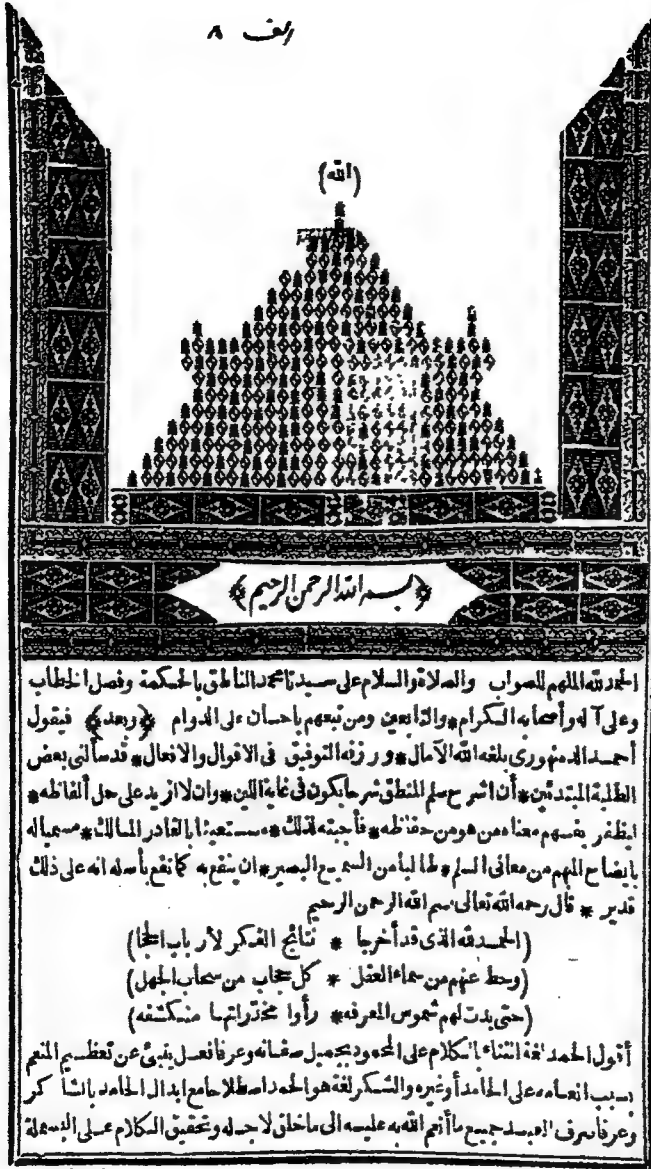 (الله)
﴿بسم الله الرحمن الرحيم﴾
الحمد لله الملهم للصواب والصلاة والسلام على سيدنا محمد الناطق بالحكمة وفصل الخطاب
وعلى آله وأصحابه الكرام * والتابعين ومن تبعهم باحسان على الدوام ﴿وبعد﴾ فيقول
أحمد الدمنهورى بلغه الله الآمال * ورزقه التوفيق فى الاقوال والافعال * قد سألنى بعض
الطلبة المبتدئين * أن اشرح سلم المنطق شرحا يكون فى غاية اللين * وان لا ازيد على حل ألفاظه *
ليظفر بفهم معناه من هو من حفاظه * فأجبته لذلك * مستعينا بالقادر المالك * مسمياله
بايضاح المبهم من معانى السلم * طالبا من السميع البصير * ان ينفع به كما نفع بأصله انه على ذلك
قدير * قال رحمه الله تعالى بسم الله الرحمن الرحيم
(الحمد لله الذى قد أخرجا * نتائج الفكر لأرباب الحجا)
(وحط عنهم من سماء العقل * كل حجاب من سحاب الجهل)
(حتى بدت لهم شموس المعرفه * رأوا مخدراتها منكشفه)
أقول الحمد لغة الثناء بالكلام على المحمود بجميل صفاته وعرفا فعل ينبئ عن تعظيم المنعم
بسبب انعامه على الحامد أو غيره والشكر لغة هو الحمد اصطلاحا مع ابدال الحامد بالشاكر
وعرفا صرف العبد جميع ما أنعم الله به عليه الى ما خلق لاجله وتحقيق الكلام على البسملة